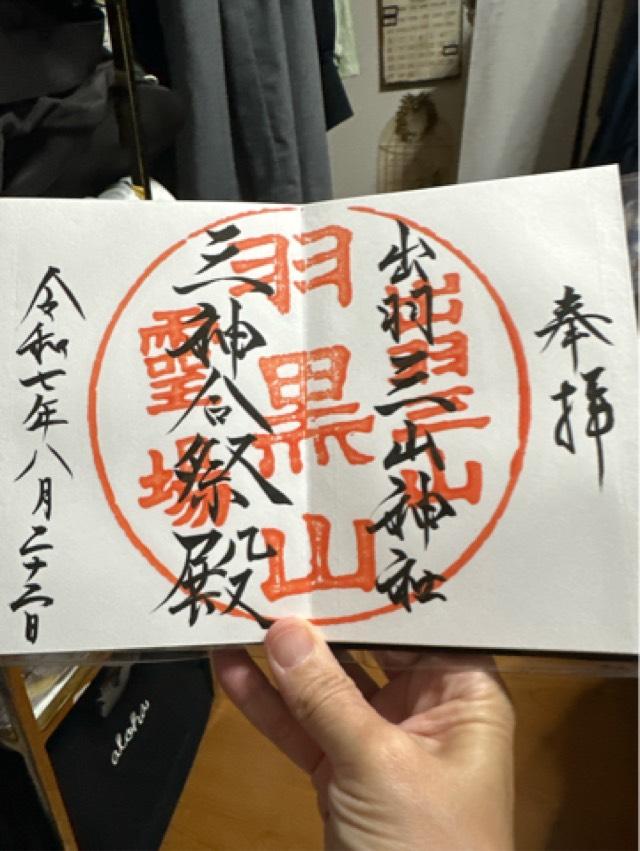 奉拝
出羽三山神社
三神合祭殿
令和七年八月二十二日
出羽三山
羽黒山
霊場
aloha